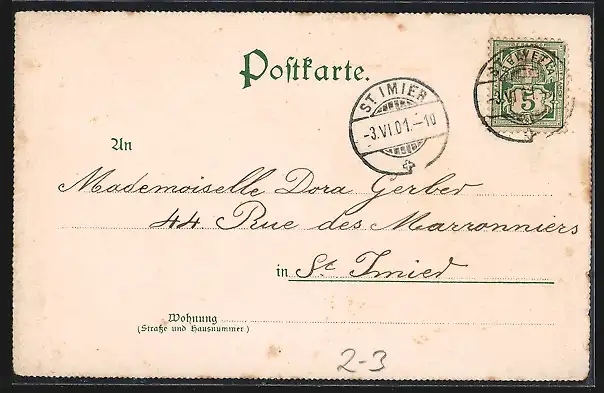 Postkarte.
HELVETIA
5
ST IMIER
-3.VI.01.-10
ST
-3.VI
An
Mademoiselle Dora Gerber
44 Rue des Marronniers
in St Imier
Wohnung
(Straße und Hausnummer)
2-3